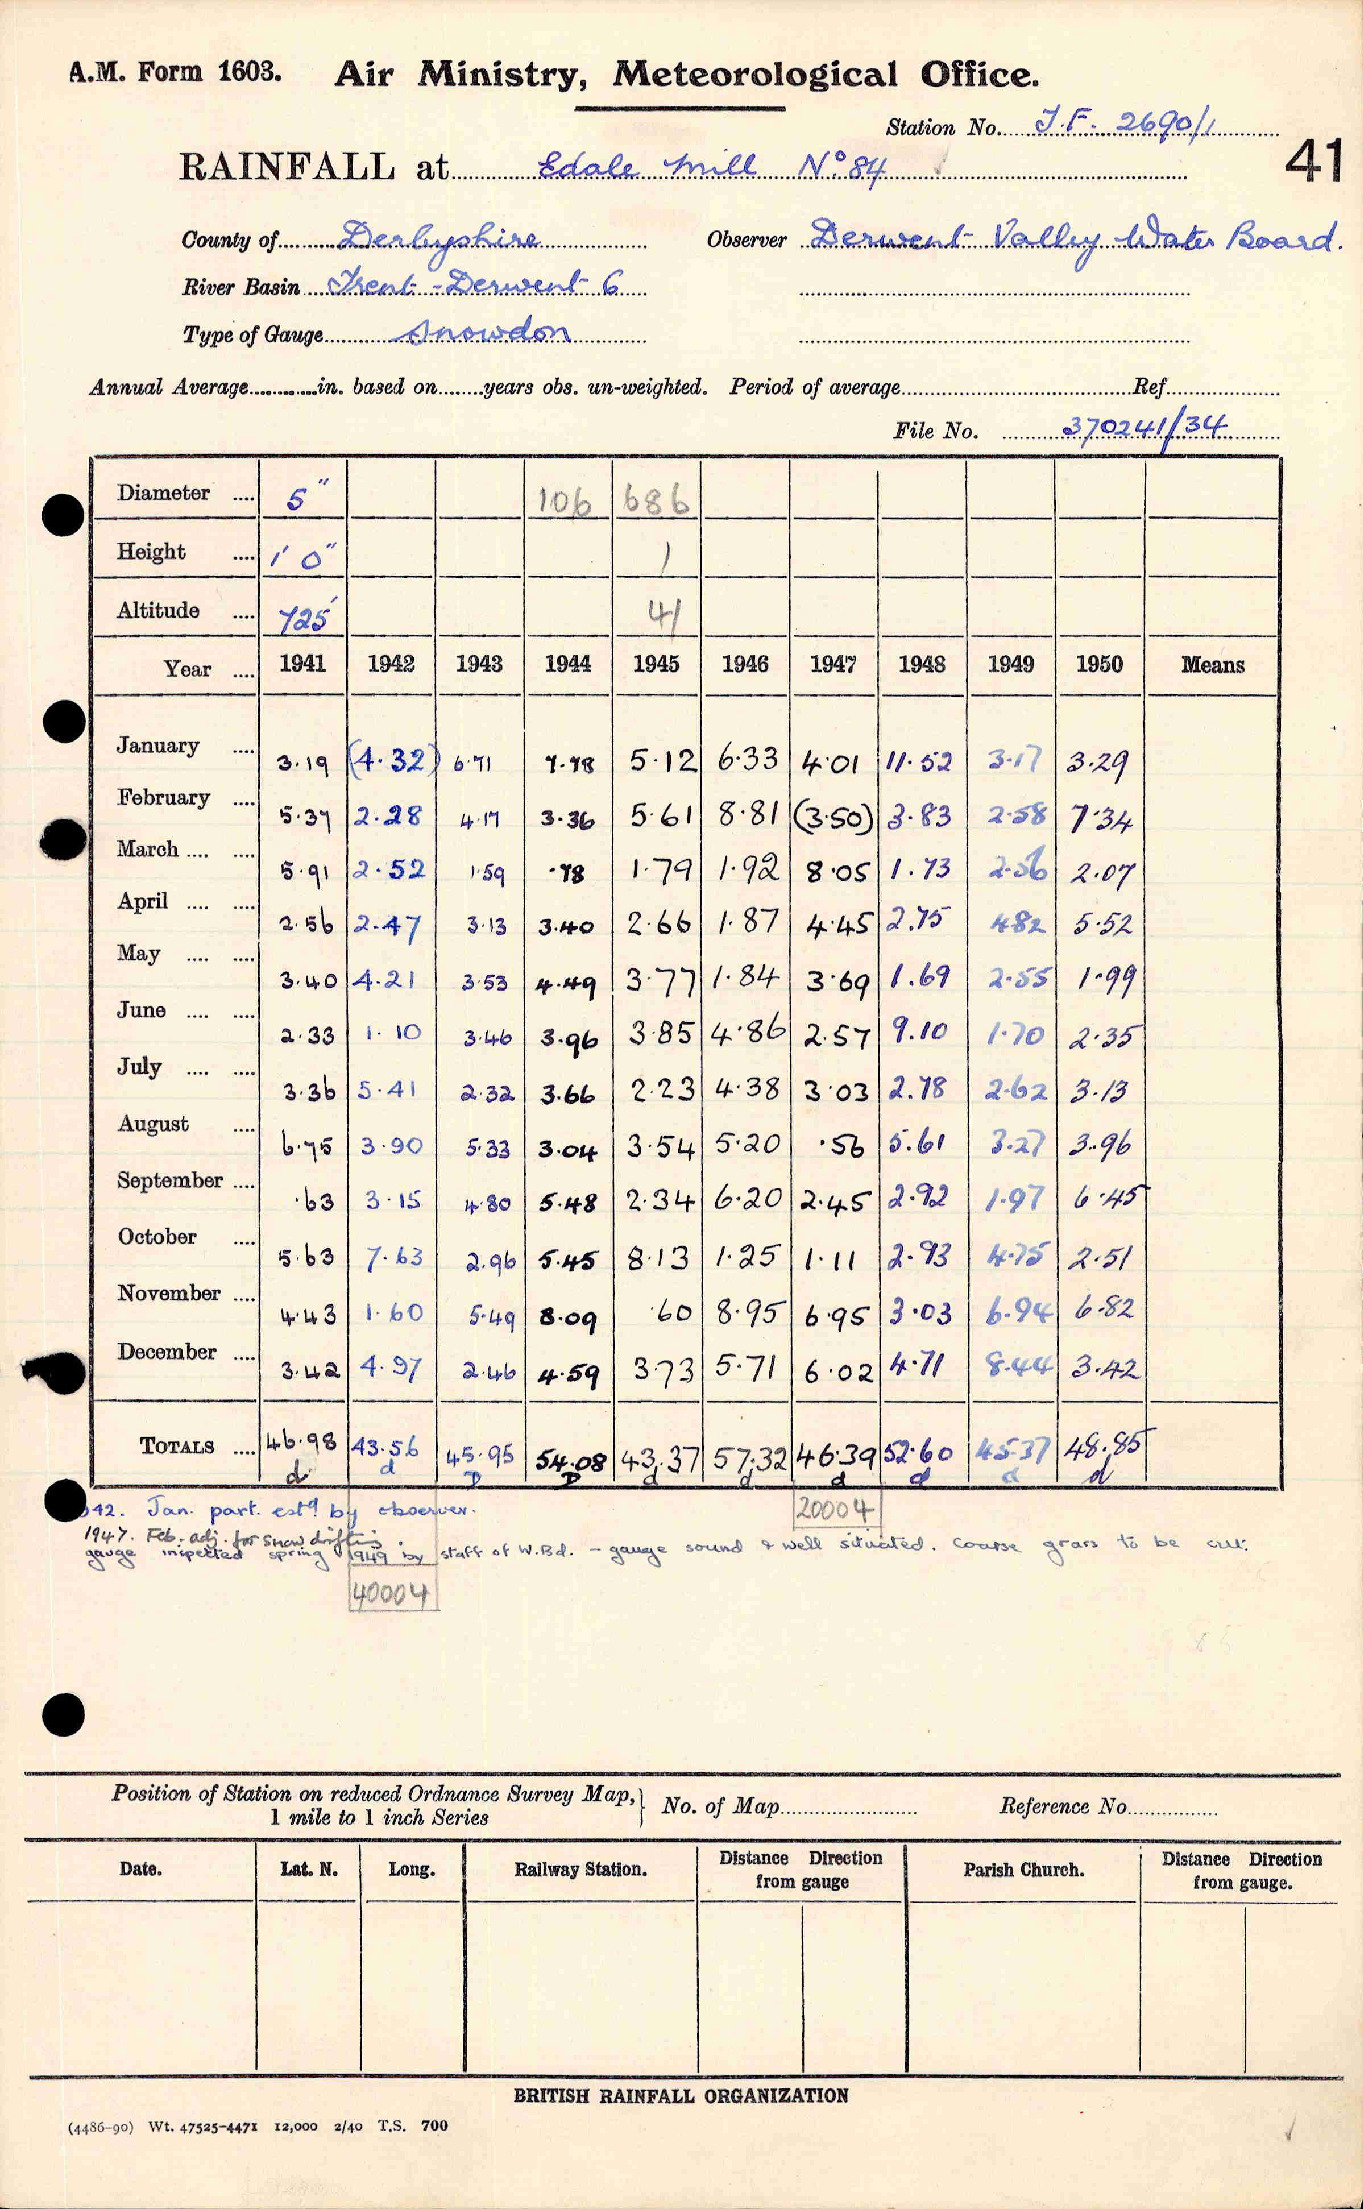 A.M. Form 1603. Air Ministry, Meteorological Office.
Station No. J.F. 2690/1
41
RAINFALL at Edale Mill Nº 84
County of Derbyshire Observer Derwent Valley Water Board.
River Basin Trent - Derwent 6
Type of Gauge Snowdon
Annual Average in. based on years obs. un-weighted. Period of average Ref
File No. 370241/34
Diameter .... 5" 106 686
Height .... 1' 0" 1
Altitude .... 725' 41
Year .... 1941 1942 1943 1944 1945 1946 1947 1948 1949 1950 Means
January .... 3.19 (4.32) 6.71 7.78 5.12 6.33 4.01 11.52 3.17 3.29
February .... 5.37 2.28 4.17 3.36 5.61 8.81 (3.50) 3.83 2.58 7.34
March .... .... 5.91 2.52 1.59 .78 1.79 1.92 8.05 1.73 2.56 2.07
April .... .... 2.56 2.47 3.13 3.40 2.66 1.87 4.45 2.75 4.82 5.52
May .... .... 3.40 4.21 3.53 4.49 3.77 1.84 3.69 1.69 2.55 1.99
June .... .... 2.33 1.10 3.46 3.96 3.85 4.86 2.57 9.10 1.70 2.35
July .... .... 3.36 5.41 2.32 3.66 2.23 4.38 3.03 2.78 2.62 3.13
August .... 6.75 3.90 5.33 3.04 3.54 5.20 .56 5.61 3.27 3.96
September .... .63 3.15 4.80 5.48 2.34 6.20 2.45 2.92 1.97 6.45
October .... 5.63 7.63 2.96 5.45 8.13 1.25 1.11 2.93 4.75 2.51
November .... 4.43 1.60 5.49 8.09 .60 8.95 6.95 3.03 6.94 6.82
December .... 3.42 4.97 2.46 4.59 3.73 5.71 6.02 4.71 8.44 3.42
TOTALS .... 46.98 43.56 45.95 54.08 43.37 57.32 46.39 52.60 45.37 48.85
d d D D d d d d d d
42. Jan. part. estd. by observer. 20004
1947. Feb. adj. for snow drifting.
gauge inspected spring 1949 by staff of W.Bd. - gauge sound & well situated. Coarse grass to be cut.
40004
Position of Station on reduced Ordnance Survey Map, } No. of Map Reference No
1 mile to 1 inch Series
Date. Lat. N. Long. Railway Station. Distance Direction from gauge Parish Church. Distance Direction from gauge.
BRITISH RAINFALL ORGANIZATION
(4486-90) Wt. 47525-4471 12,000 2/40 T.S. 700